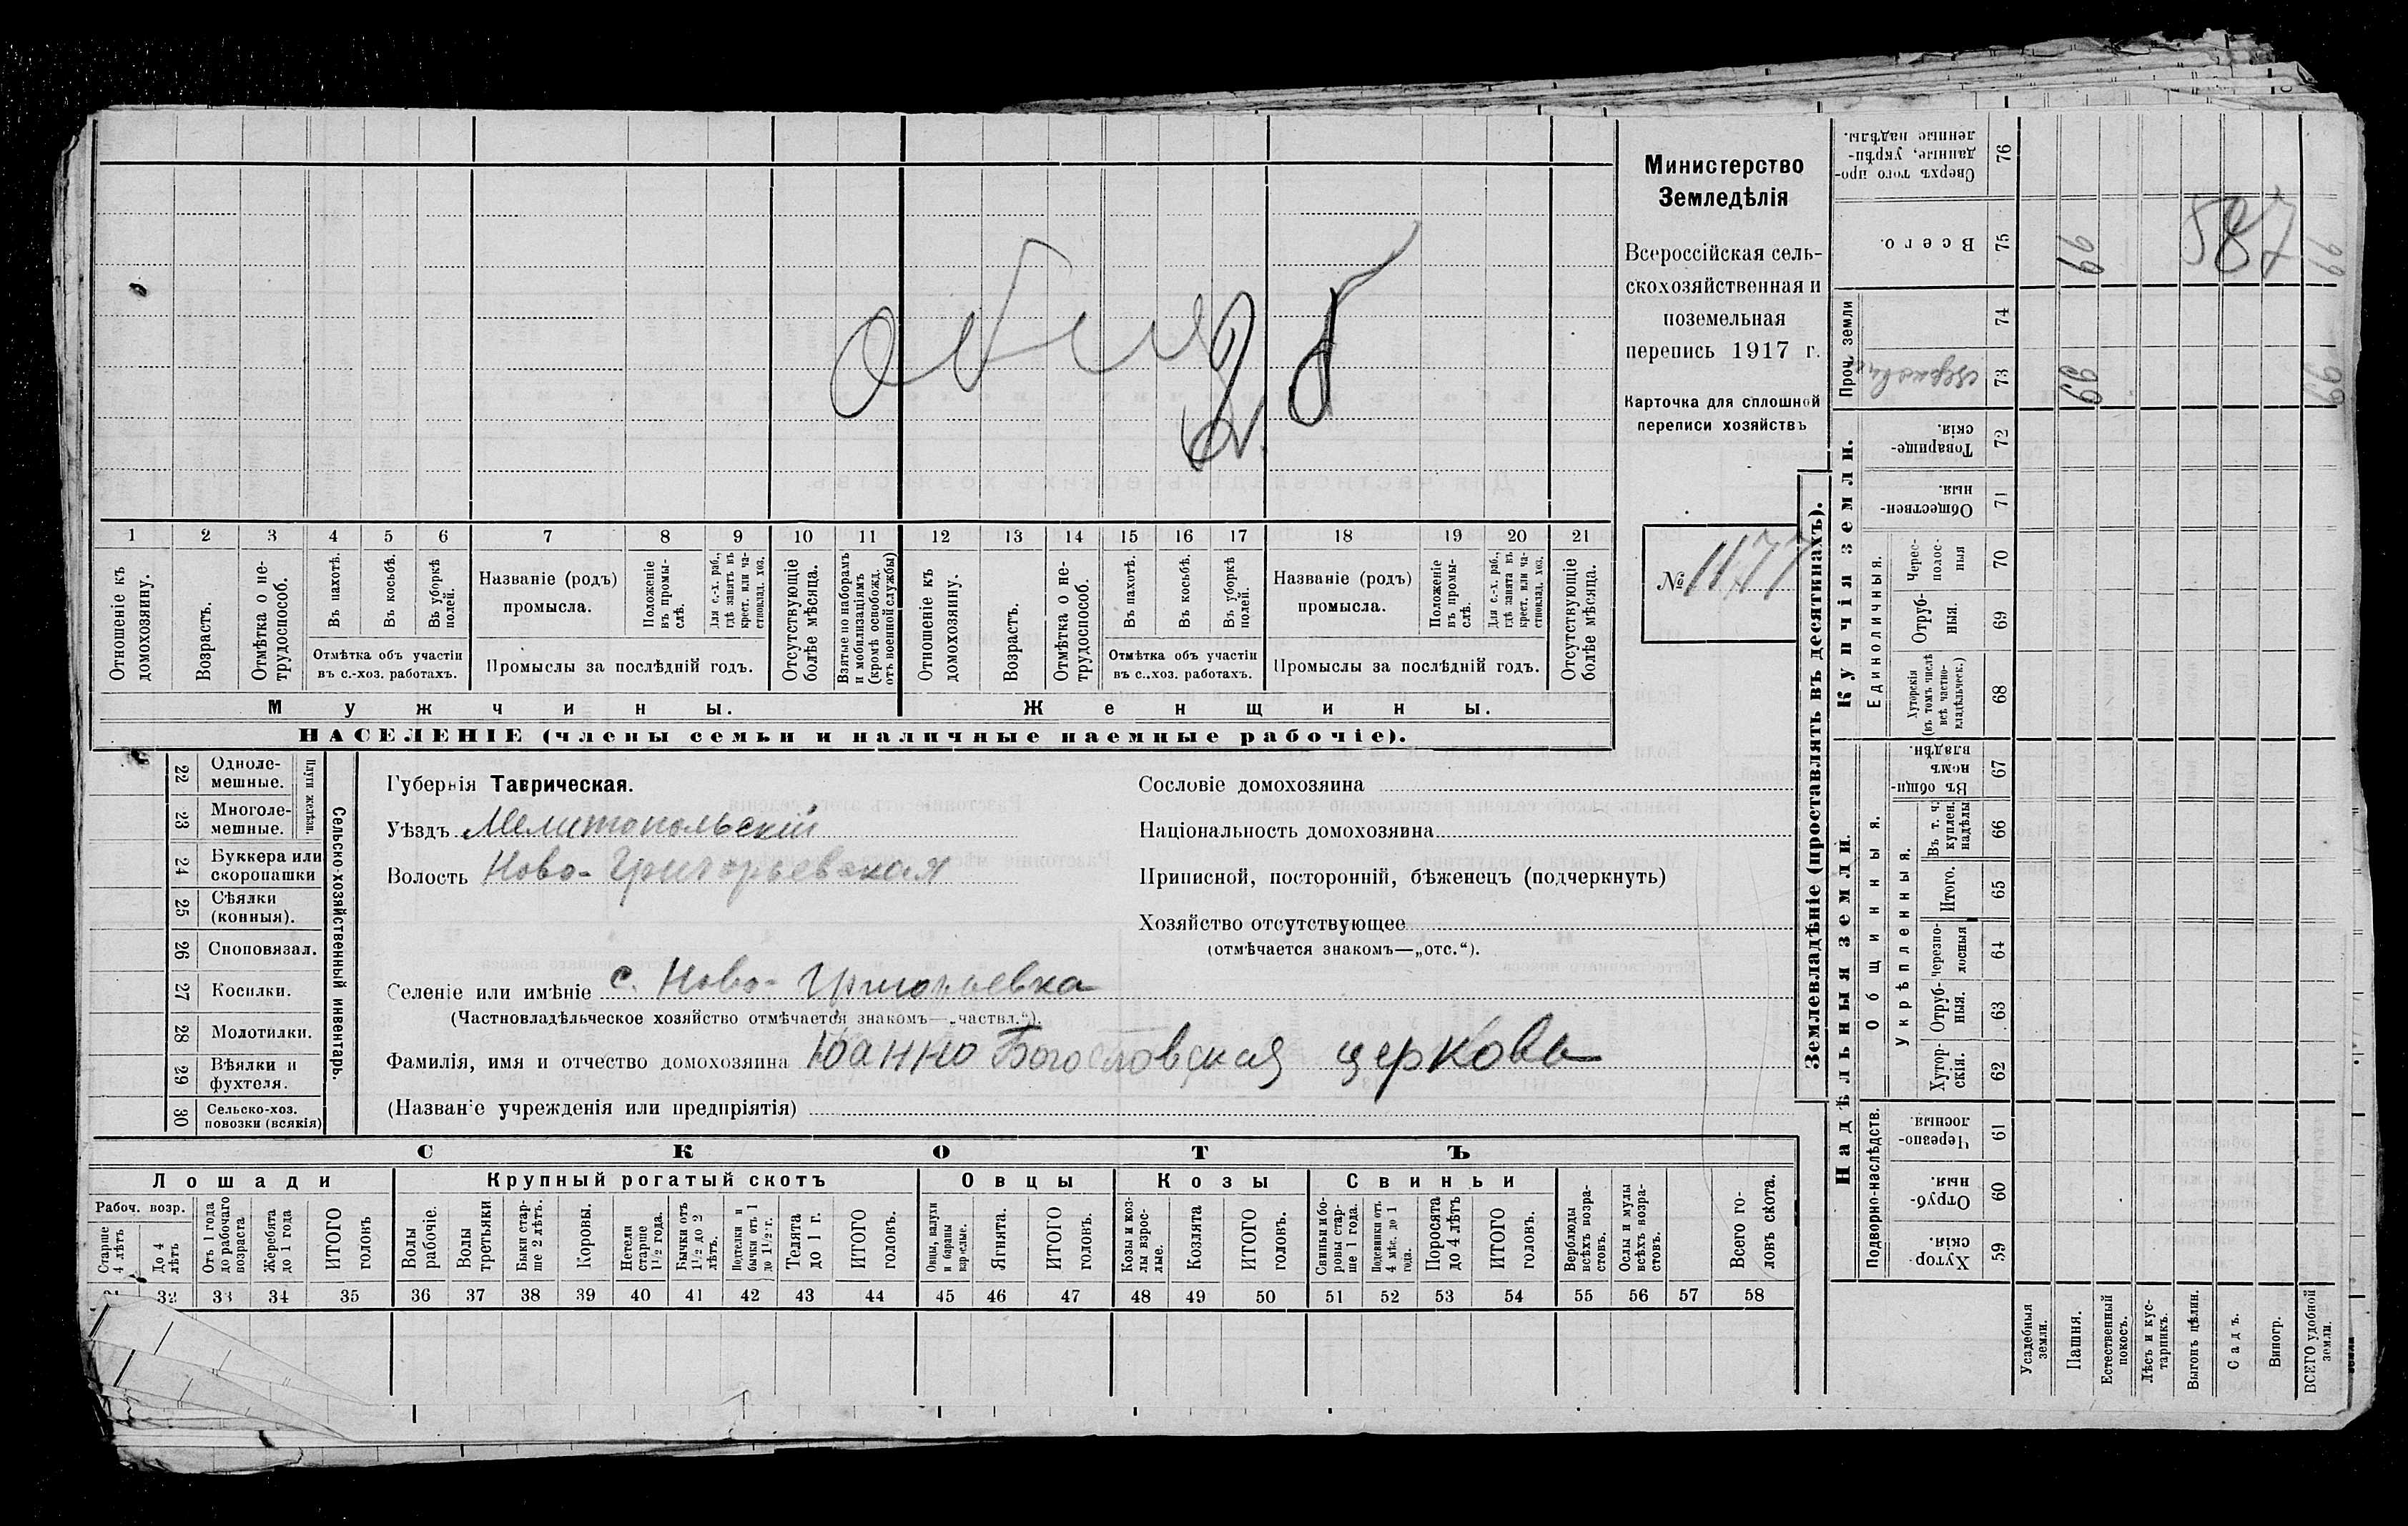 1 2 3 4 5 6 7 8 9 10 11 12 13 14 15 16 17 18 19 20 21
Отношеніе къ домохозяину.
Возрастъ.
Отмѣтка о нетрудоспособ.
Въ пахотѣ.
Въ косьбѣ.
Въ уборкѣ полей.
Отмѣтка объ участіи
въ с.-хоз. работахъ.
Названіе (родъ)
промысла.
Положеніе въ промыслѣ.
Для с.-х. раб., гдѣ занятъ въ крест. или частновлад. хоз.
Промыслы за послѣдній годъ.
Отсутствующіе болѣе мѣсяца.
Взятые по наборамъ и мобилизаціямъ (кромѣ освобожд. отъ военной службы)
Отношеніе къ домохозяину.
Возрастъ.
Отмѣтка о нетрудоспособ.
Въ пахотѣ.
Въ косьбѣ.
Въ уборкѣ полей.
Отмѣтка объ участіи
въ с.-хоз. работахъ.
Названіе (родъ)
промысла.
Положеніе въ промыслѣ.
Для с.-х. раб., гдѣ занята въ крест. или частновлад. хоз.
Промыслы за послѣдній годъ.
Отсутствующіе болѣе мѣсяца.
Мужчины.
Женщины.
НАСЕЛЕНІЕ (члены семьи и наличные наемные рабочіе).
Министерство
Земледѣлія
Всероссійская сель-
скохозяйственная и
поземельная
перепись 1917 г.
Карточка для сплошной
переписи хозяйствъ
№ 1177
22 Однолемешные.
23 Многолемешные.
Плуги желѣзн.
24 Буккера или скоропашки
25 Сѣялки (конныя).
26 Сноповязал.
27 Косилки.
28 Молотилки.
29 Вѣялки и фухтеля.
30 Сельско-хоз. повозки (всякія)
Сельско-хозяйственный инвентарь.
Губернія Таврическая.
Уѣздъ Мелитопольскій
Волость Ново-Григорьевская
Селеніе или имѣніе с. Ново-Григорьевка
(Частновладѣльческое хозяйство отмѣчается знакомъ—„частвл.“).
Фамилія, имя и отчество домохозяина Іоанно Богословская церковь
(Названіе учрежденія или предпріятія)
Сословіе домохозяина
Національность домохозяина
Приписной, посторонній, бѣженецъ (подчеркнуть)
Хозяйство отсутствующее
(отмѣчается знакомъ—„отс.“).
СКОТЪ
Лошади
Крупный рогатый скотъ
Овцы
Козы
Свиньи
Рабоч. возр.
Старше 4 лѣтъ
До 4 лѣтъ
Отъ 1 года до рабочаго возраста
Жеребята до 1 года
ИТОГО головъ
Волы рабочіе.
Волы третьяки
Быки старше 2 лѣтъ.
Коровы.
Нетели старше 1½ года.
Бычки отъ 1½ до 2 лѣтъ.
Подтелки и бычки отъ 1 до 1½ г.
Телята до 1 г.
ИТОГО головъ.
Овцы, валухи и бараны взрослые.
Ягнята.
ИТОГО головъ.
Козы и козлы взрослые.
Козлята
ИТОГО головъ.
Свиньи и боровы старше 1 года.
Подсвинки отъ 4 мѣс. до 1 года.
Поросята до 4 лѣтъ
ИТОГО головъ.
Верблюды всѣхъ возрастовъ.
Ослы и мулы всѣхъ возрастовъ.
Всего головъ скота.
32 33 34 35 36 37 38 39 40 41 42 43 44 45 46 47 48 49 50 51 52 53 54 55 56 57 58
Землевладѣніе (проставлять въ десятинахъ).
Надѣльныя земли.
Купчія земли.
Проч. земли
Подворно-наслѣдств.
Общинныя.
Укрѣпленныя.
Единоличныя.
Сверхъ того проданные, укрѣпленные надѣлы. 76
Всего. 75 99 587 99
74
церковн 73 99 99
Товарищескія. 72
Общественныя. 71
Чересполосныя 70
Отрубныя. 69
Хуторскія (въ томъ числѣ всѣ частновладѣльческ.) 68
Въ общинномъ владѣн. 67
Въ т. ч. куплен. надѣлы 66
Итого. 65
Черезполосныя 64
Отрубныя. 63
Хуторскія. 62
Черезполосныя. 61
Отрубныя. 60
Хуторскія. 59
Усадебныя земли.
Пашня.
Естественный покосъ.
Лѣсъ и кустарникъ.
Выгонъ цѣлин.
Садъ.
Виногр.
ВСЕГО удобной земли.